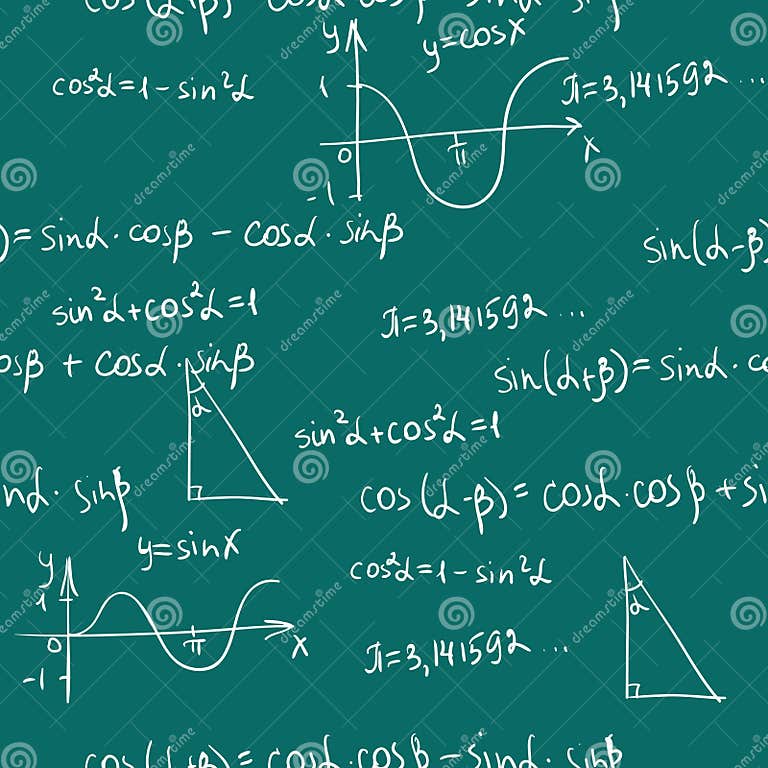 cos(α+β)
y
y=cosx
cos²α=1-sin²α
1
π=3,141592...
0
π
x
-1
)=sinα·cosβ - cosα·sinβ
sin(α-β)
sin²α+cos²α=1
π=3,141592...
osβ + cosα·sinβ
sin(α+β)=sinα·c
α
sin²α+cos²α=1
nα·sinβ
cos(α-β)=cosα·cosβ+si
y=sinx
y
cos²α=1-sin²α
1
α
0
π
x
π=3,141592...
-1
cos(α+β)=cosα·cosβ-sinα·sinβ
dreamstime